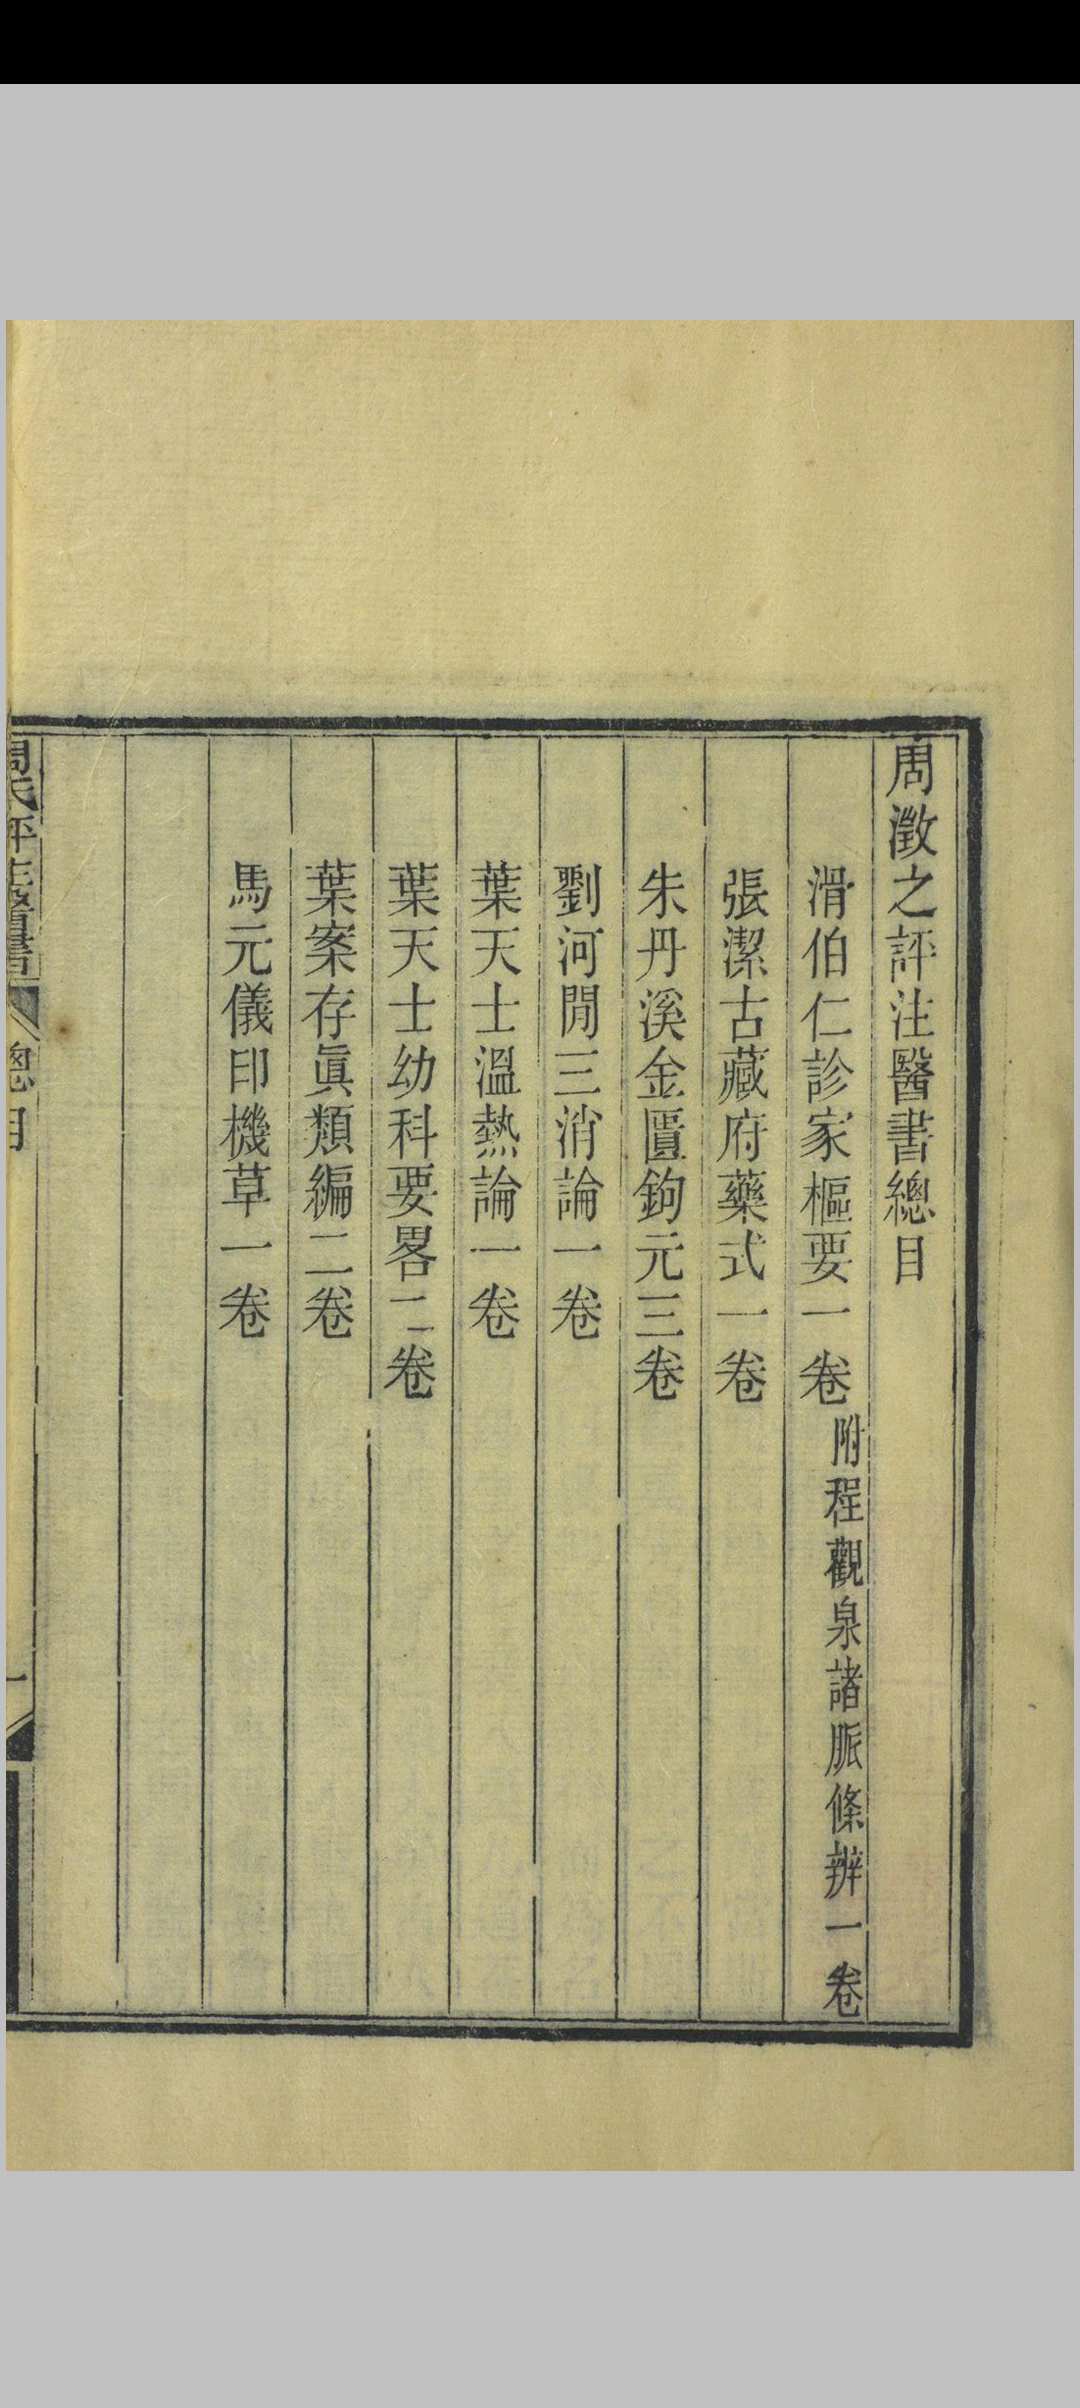 周澂之評注醫書總目
滑伯仁診家樞要一卷附程觀泉諸脈條辨一卷
張潔古藏府藥式一卷
朱丹溪金匱鉤元三卷
劉河閒三消論一卷
葉天士溫熱論一卷
葉天士幼科要畧二卷
葉案存眞類編二卷
馬元儀印機草一卷
周氏評注醫書 總目 一